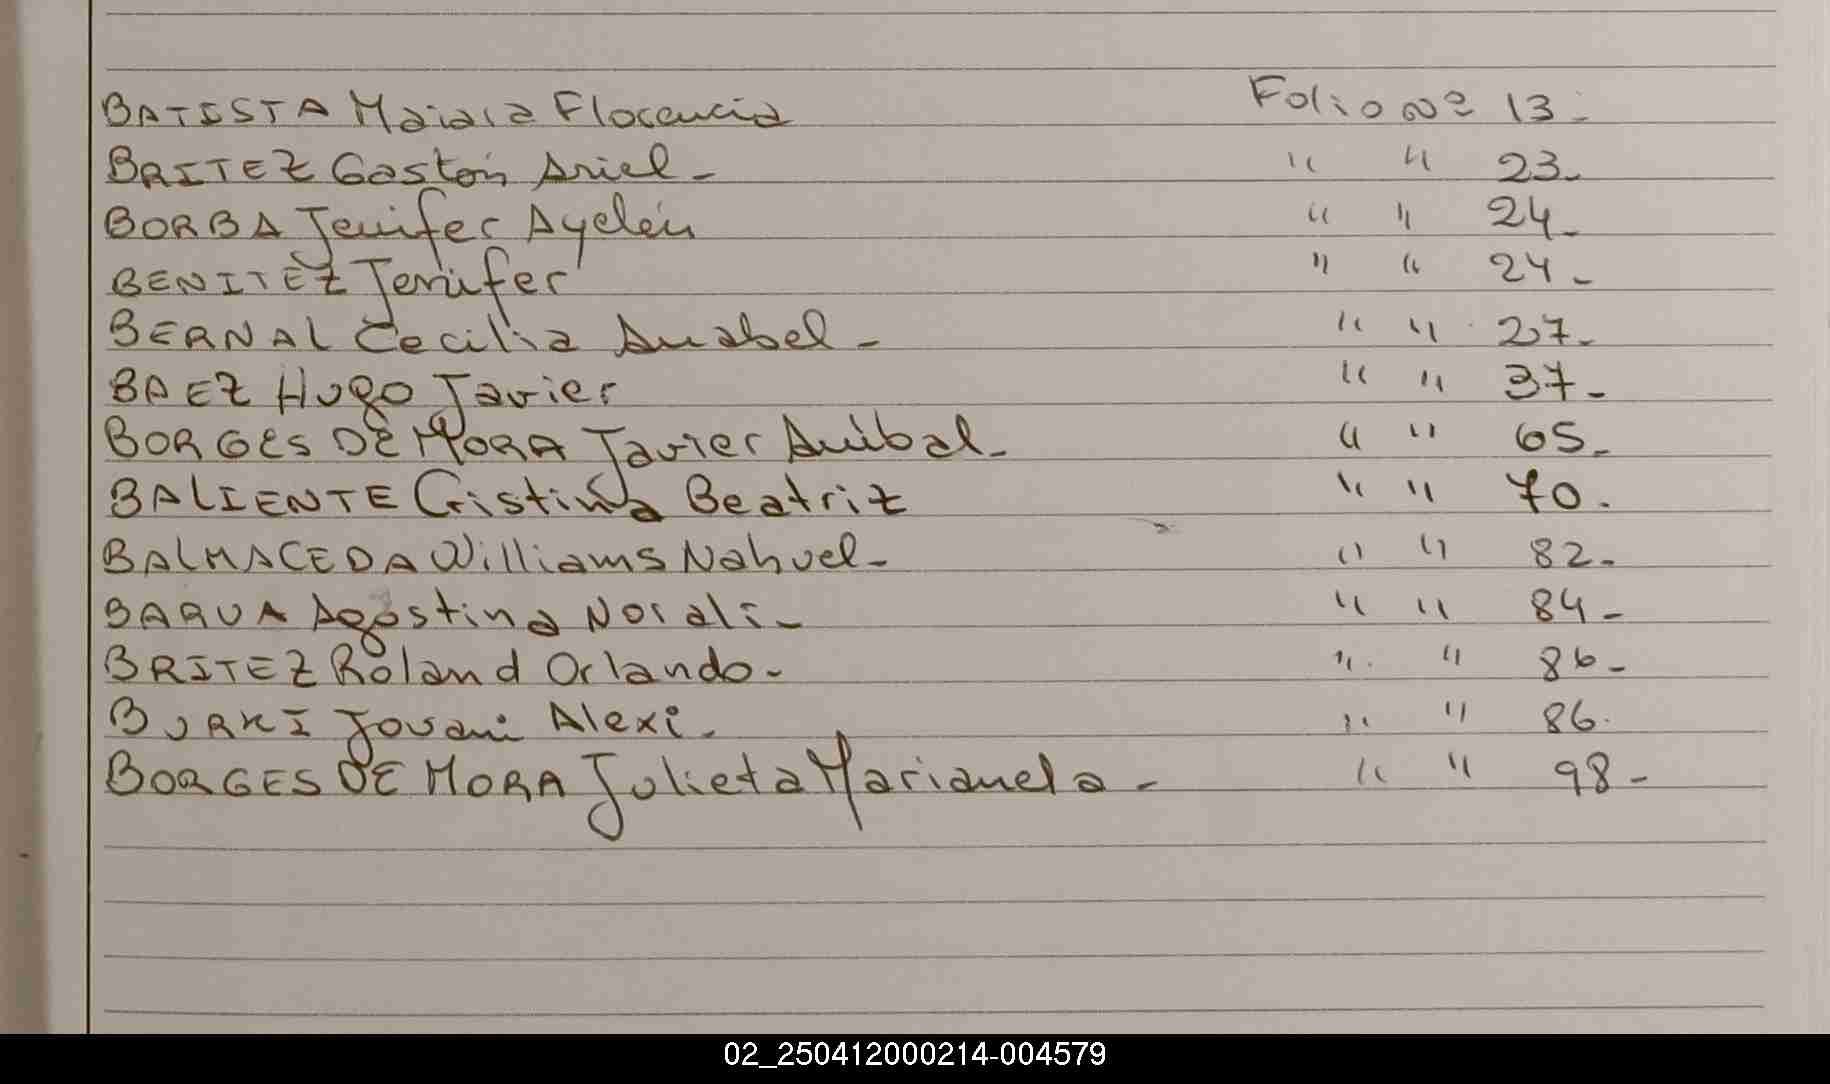 BATISTA Maiara Florencia Folio Nº 13-
BRITEZ Gastón Ariel- " " 23-
BORBA Jenifer Ayelén " " 24-
BENITEZ Jenifer " " 24-
BERNAL Cecilia Anabel- " " 27-
BAEZ Hugo Javier " " 37-
BORGES DE MORA Javier Anibal- " " 65-
BALIENTE Cristina Beatriz " " 70.
BALMACEDA Williams Nahuel- " " 82-
BARUA Agostina Norali- " " 84-
BRITEZ Roland Orlando- " " 86-
BURKI Jovani Alexi. " " 86.
BORGES DE MORA Julieta Marianela- " " 98-
02_250412000214-004579